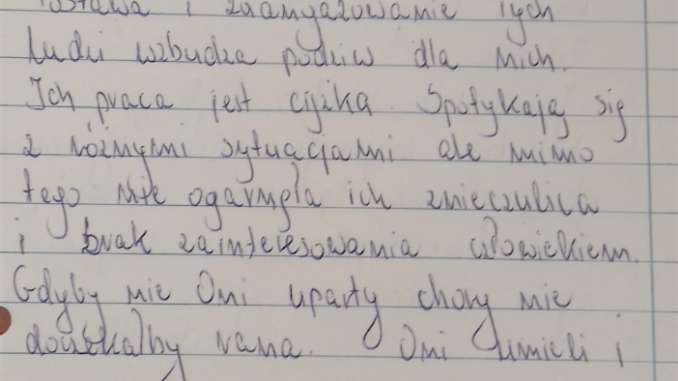 postawa i zaangażowanie tych
ludzi wzbudza podziw dla nich.
Ich praca jest ciężka. Spotykają się
z różnymi sytuacjami ale mimo
tego nie ogarnęła ich znieczulica
i brak zainteresowania człowiekiem.
Gdyby nie Oni uparty chory nie
doczekałby rana. Oni umieli i